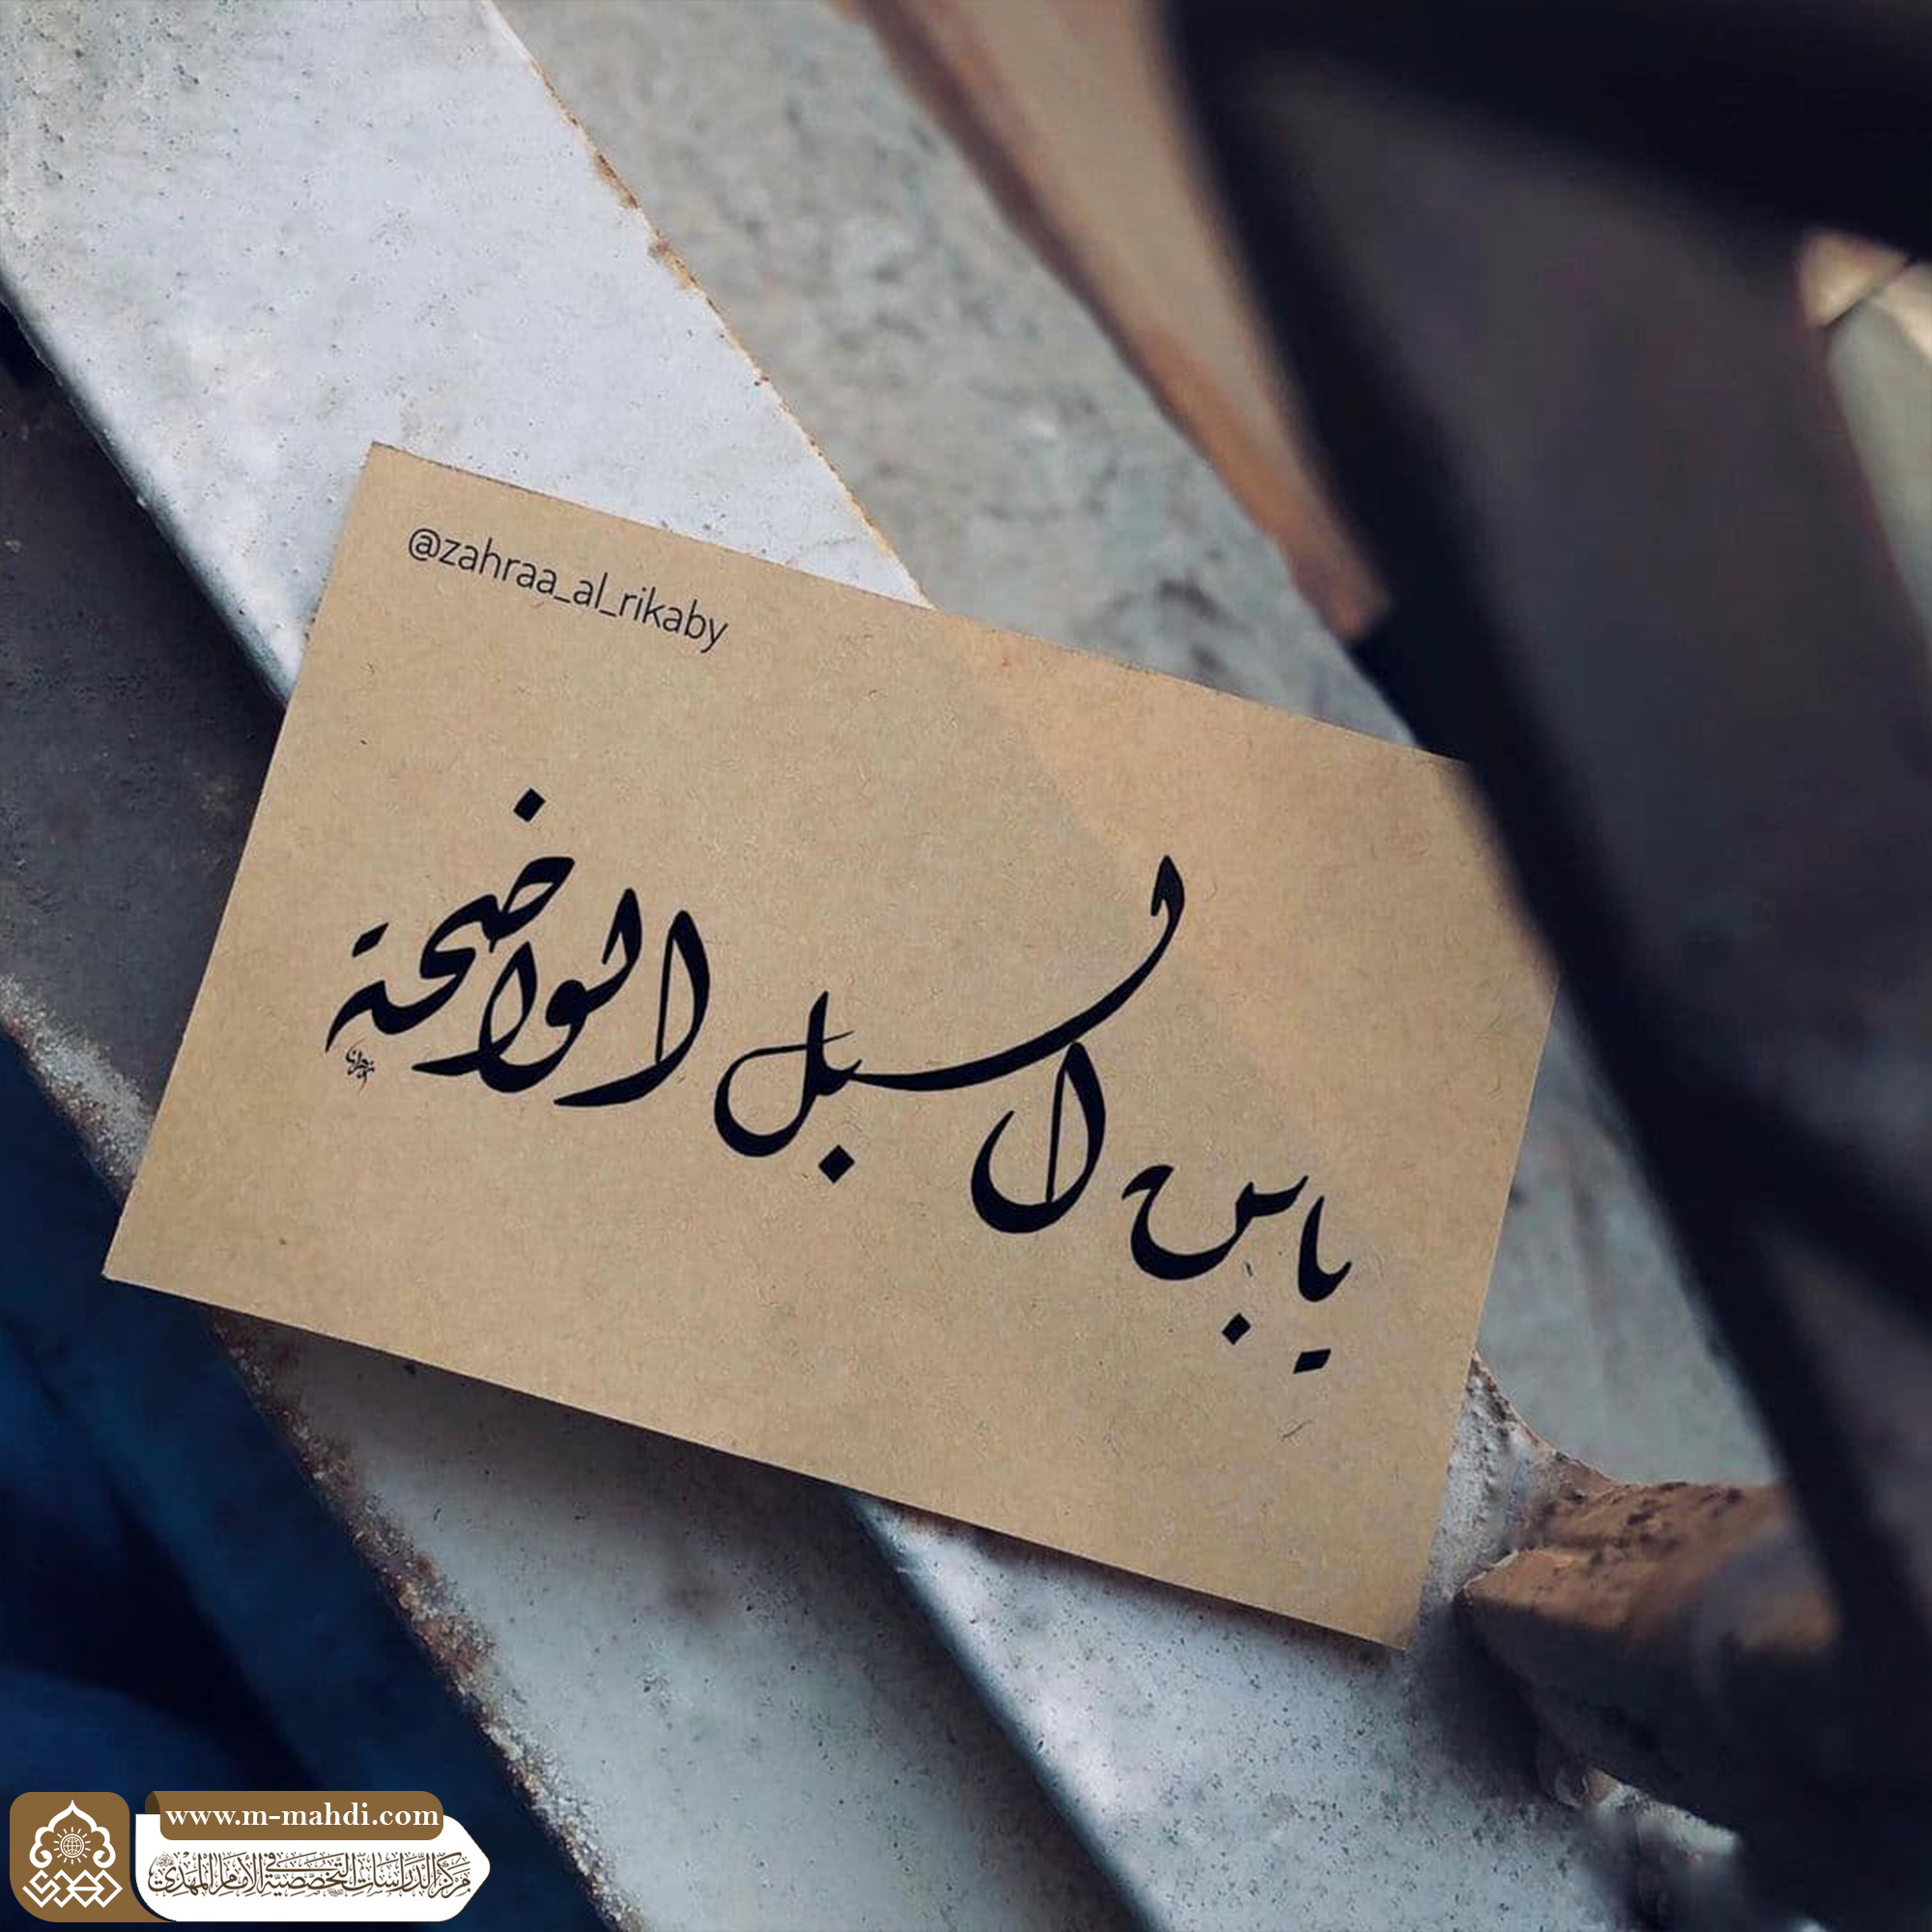 @zahraa_al_rikaby
يابن السبل الواضحة
www.m-mahdi.com
مركز الدراسات التخصصية في الإمام المهدي